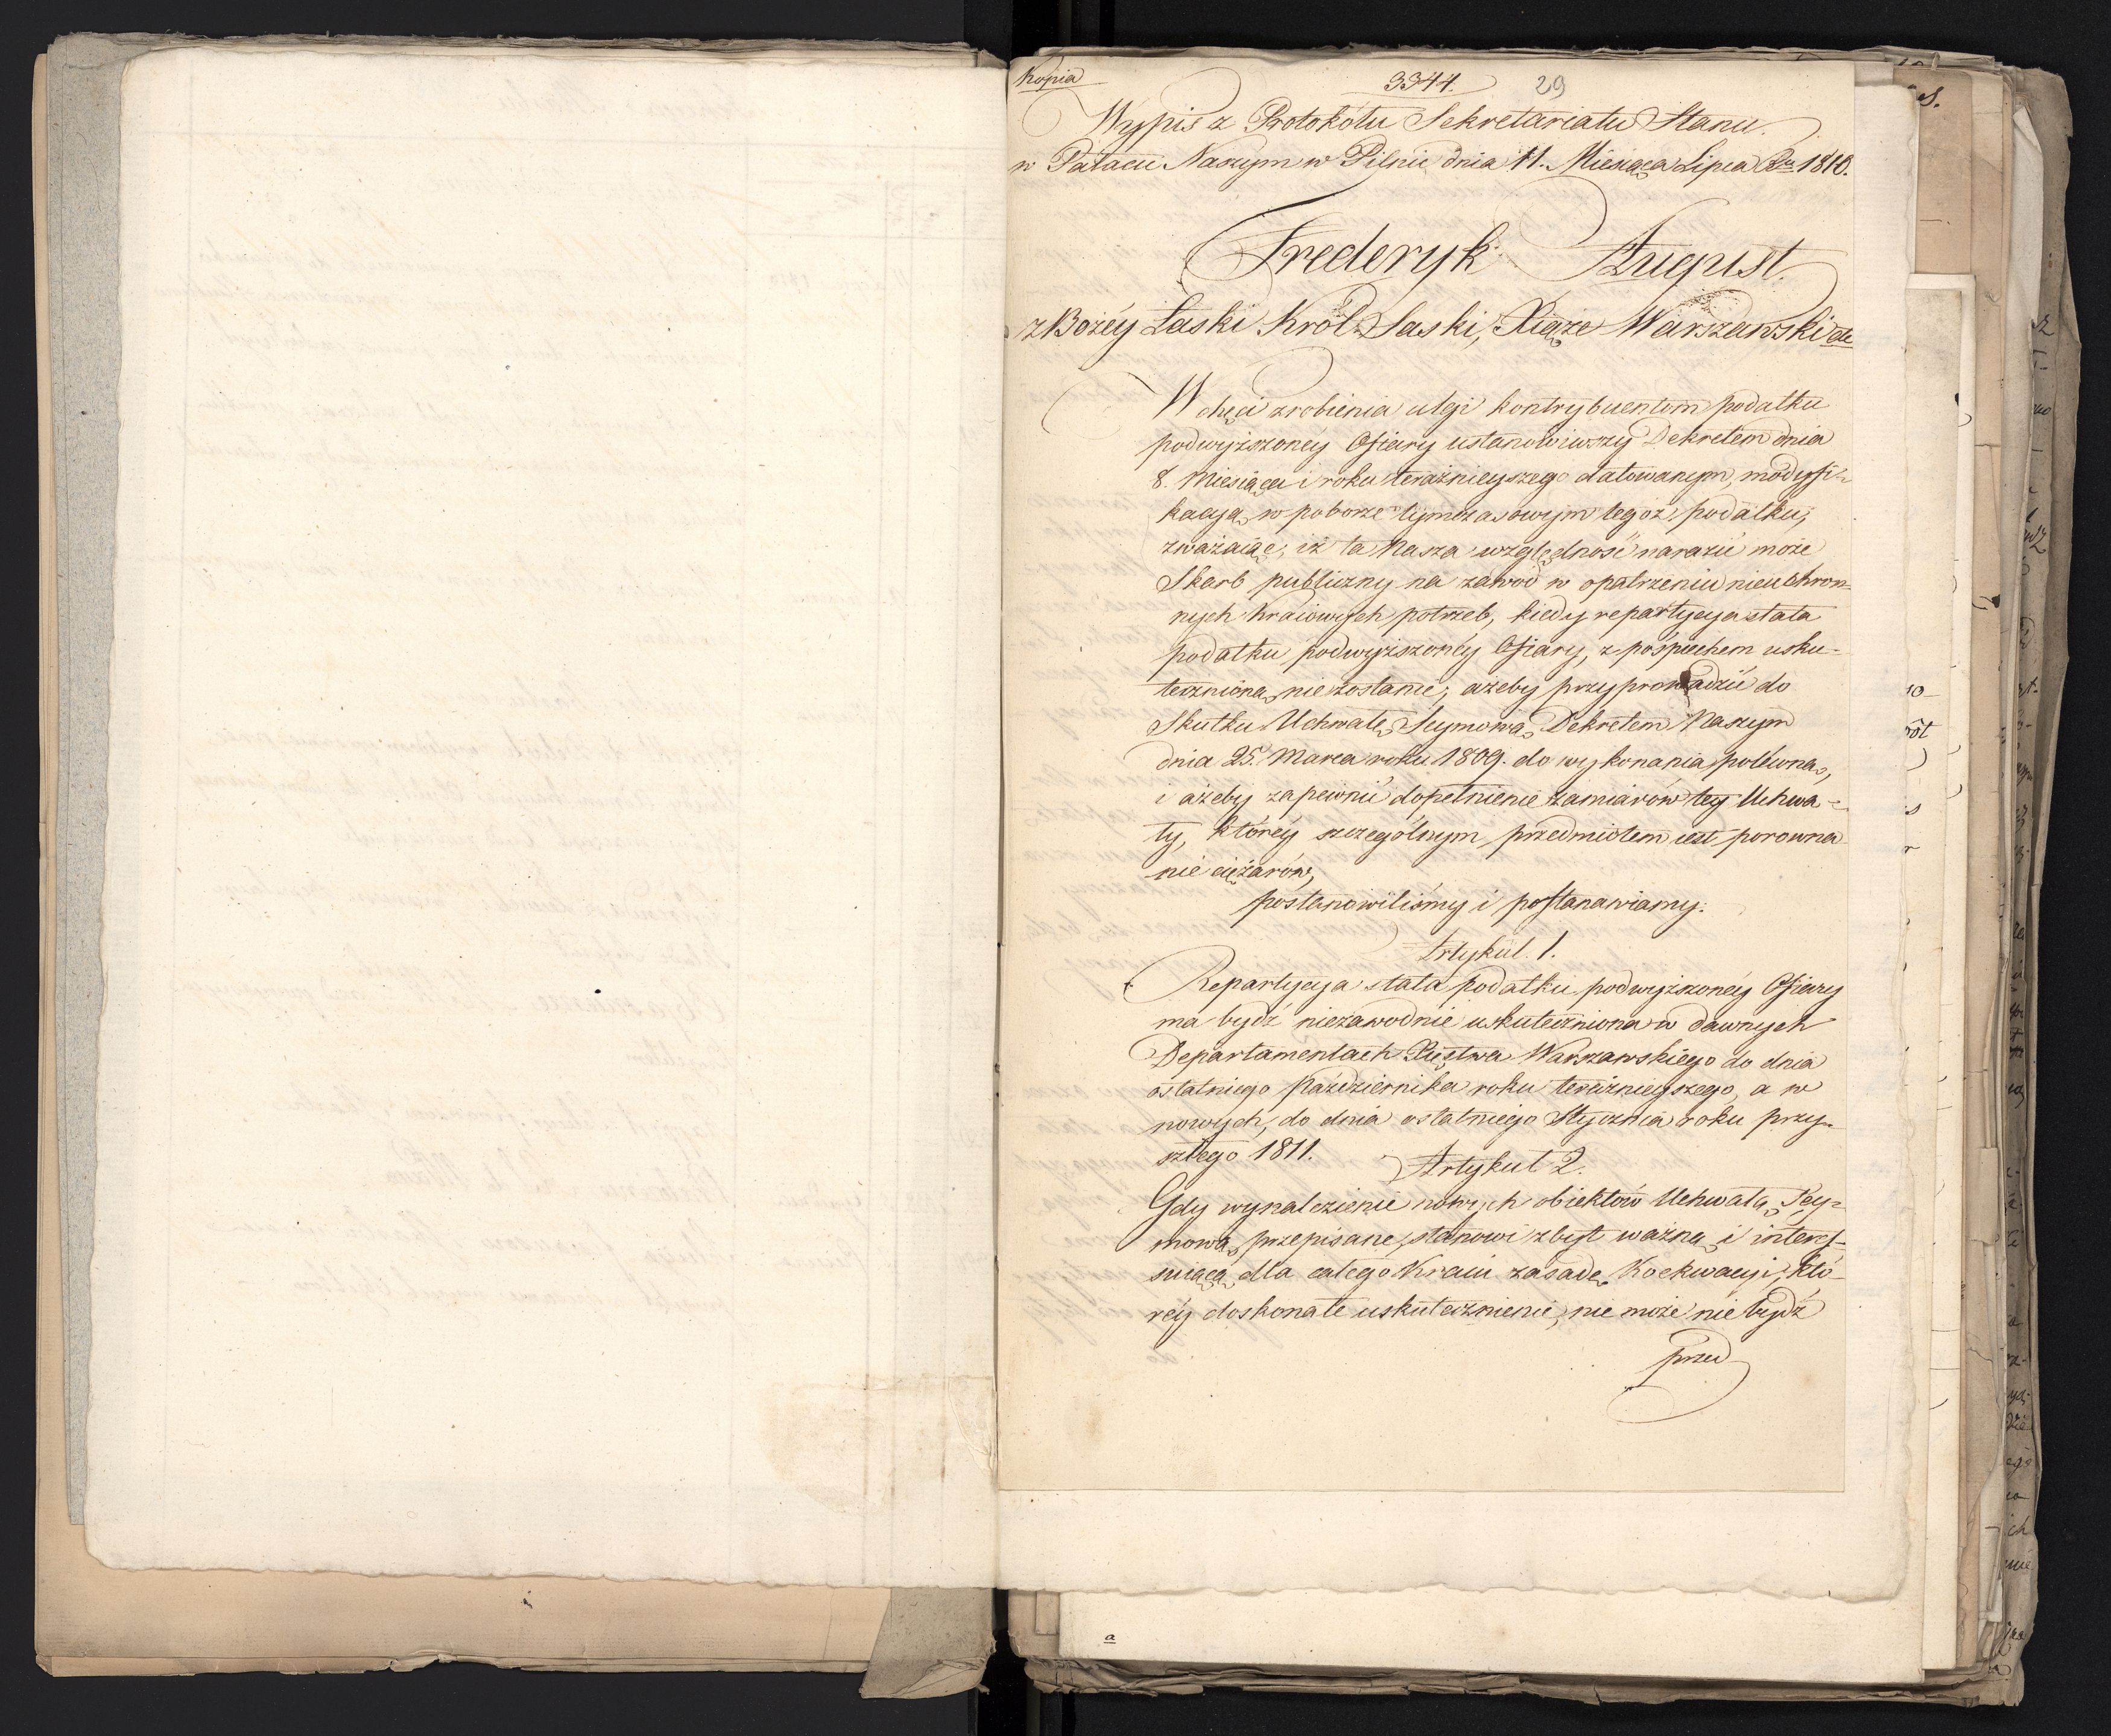 Kopia
3344. 29
Wypis z Protokółu Sekretariatu Stanu.
w Pałacu Naszym w Pilnic dnia 11. Miesiąca Lipca Rku 1810.
Frederyk August.
z Bożéy Łaski Król Saski, Xiąże Warszawski etc
W chęci zrobienia ulgi kontrybuentom podatku
podwyższonéy Ofiary ustanowiwszy Dekretem dnia
8. Miesiąca i roku teraźnieyszego datowanym, modyfi-
kacyą w poborze tymczasowym tegoż podatku;
zważaiąc, iż ta Nasza względność narazić może
Skarb publiczny na zawód w opatrzeniu nieuchron-
nych Kraiowych potrzeb, kiedy repartycya stała
podatku podwyższonéy Ofiary, z pośpiechem usku-
teczniona nie zostanie; ażeby przyprowadzić do
Skutku Uchwałę Seymową Dekretem Naszym
dnia 25. Marca roku 1809. do wykonania poleconą,
i ażeby zapewnić dopełnienie zamiarów tey Uchwa-
ły, któréy szczególnym przedmiotem iest porowna
nie ciężarów,
postanowiliśmy i postanawiamy:
Artykuł. 1.
Repartycya stała podatku podwyższonéy Ofiary
ma bydź niezawodnie uskuteczniona w dawnych
Departamentach Xięstwa Warszawskiego do dnia
ostatniego Października roku teraźnieyszego, a w
nowych, do dnia ostatniego Stycznia roku przy-
szłego 1811.
Artykuł 2.
Gdy wynalezienie nowych obiektów Uchwałą Sey-
mową przepisane, stanowi zbyt ważną i interes-
suiącą dla całego Kraiu zasadę Koekwacyi, któ-
réy doskonałe uskutecznienie, nie może nie bydź
przed
a